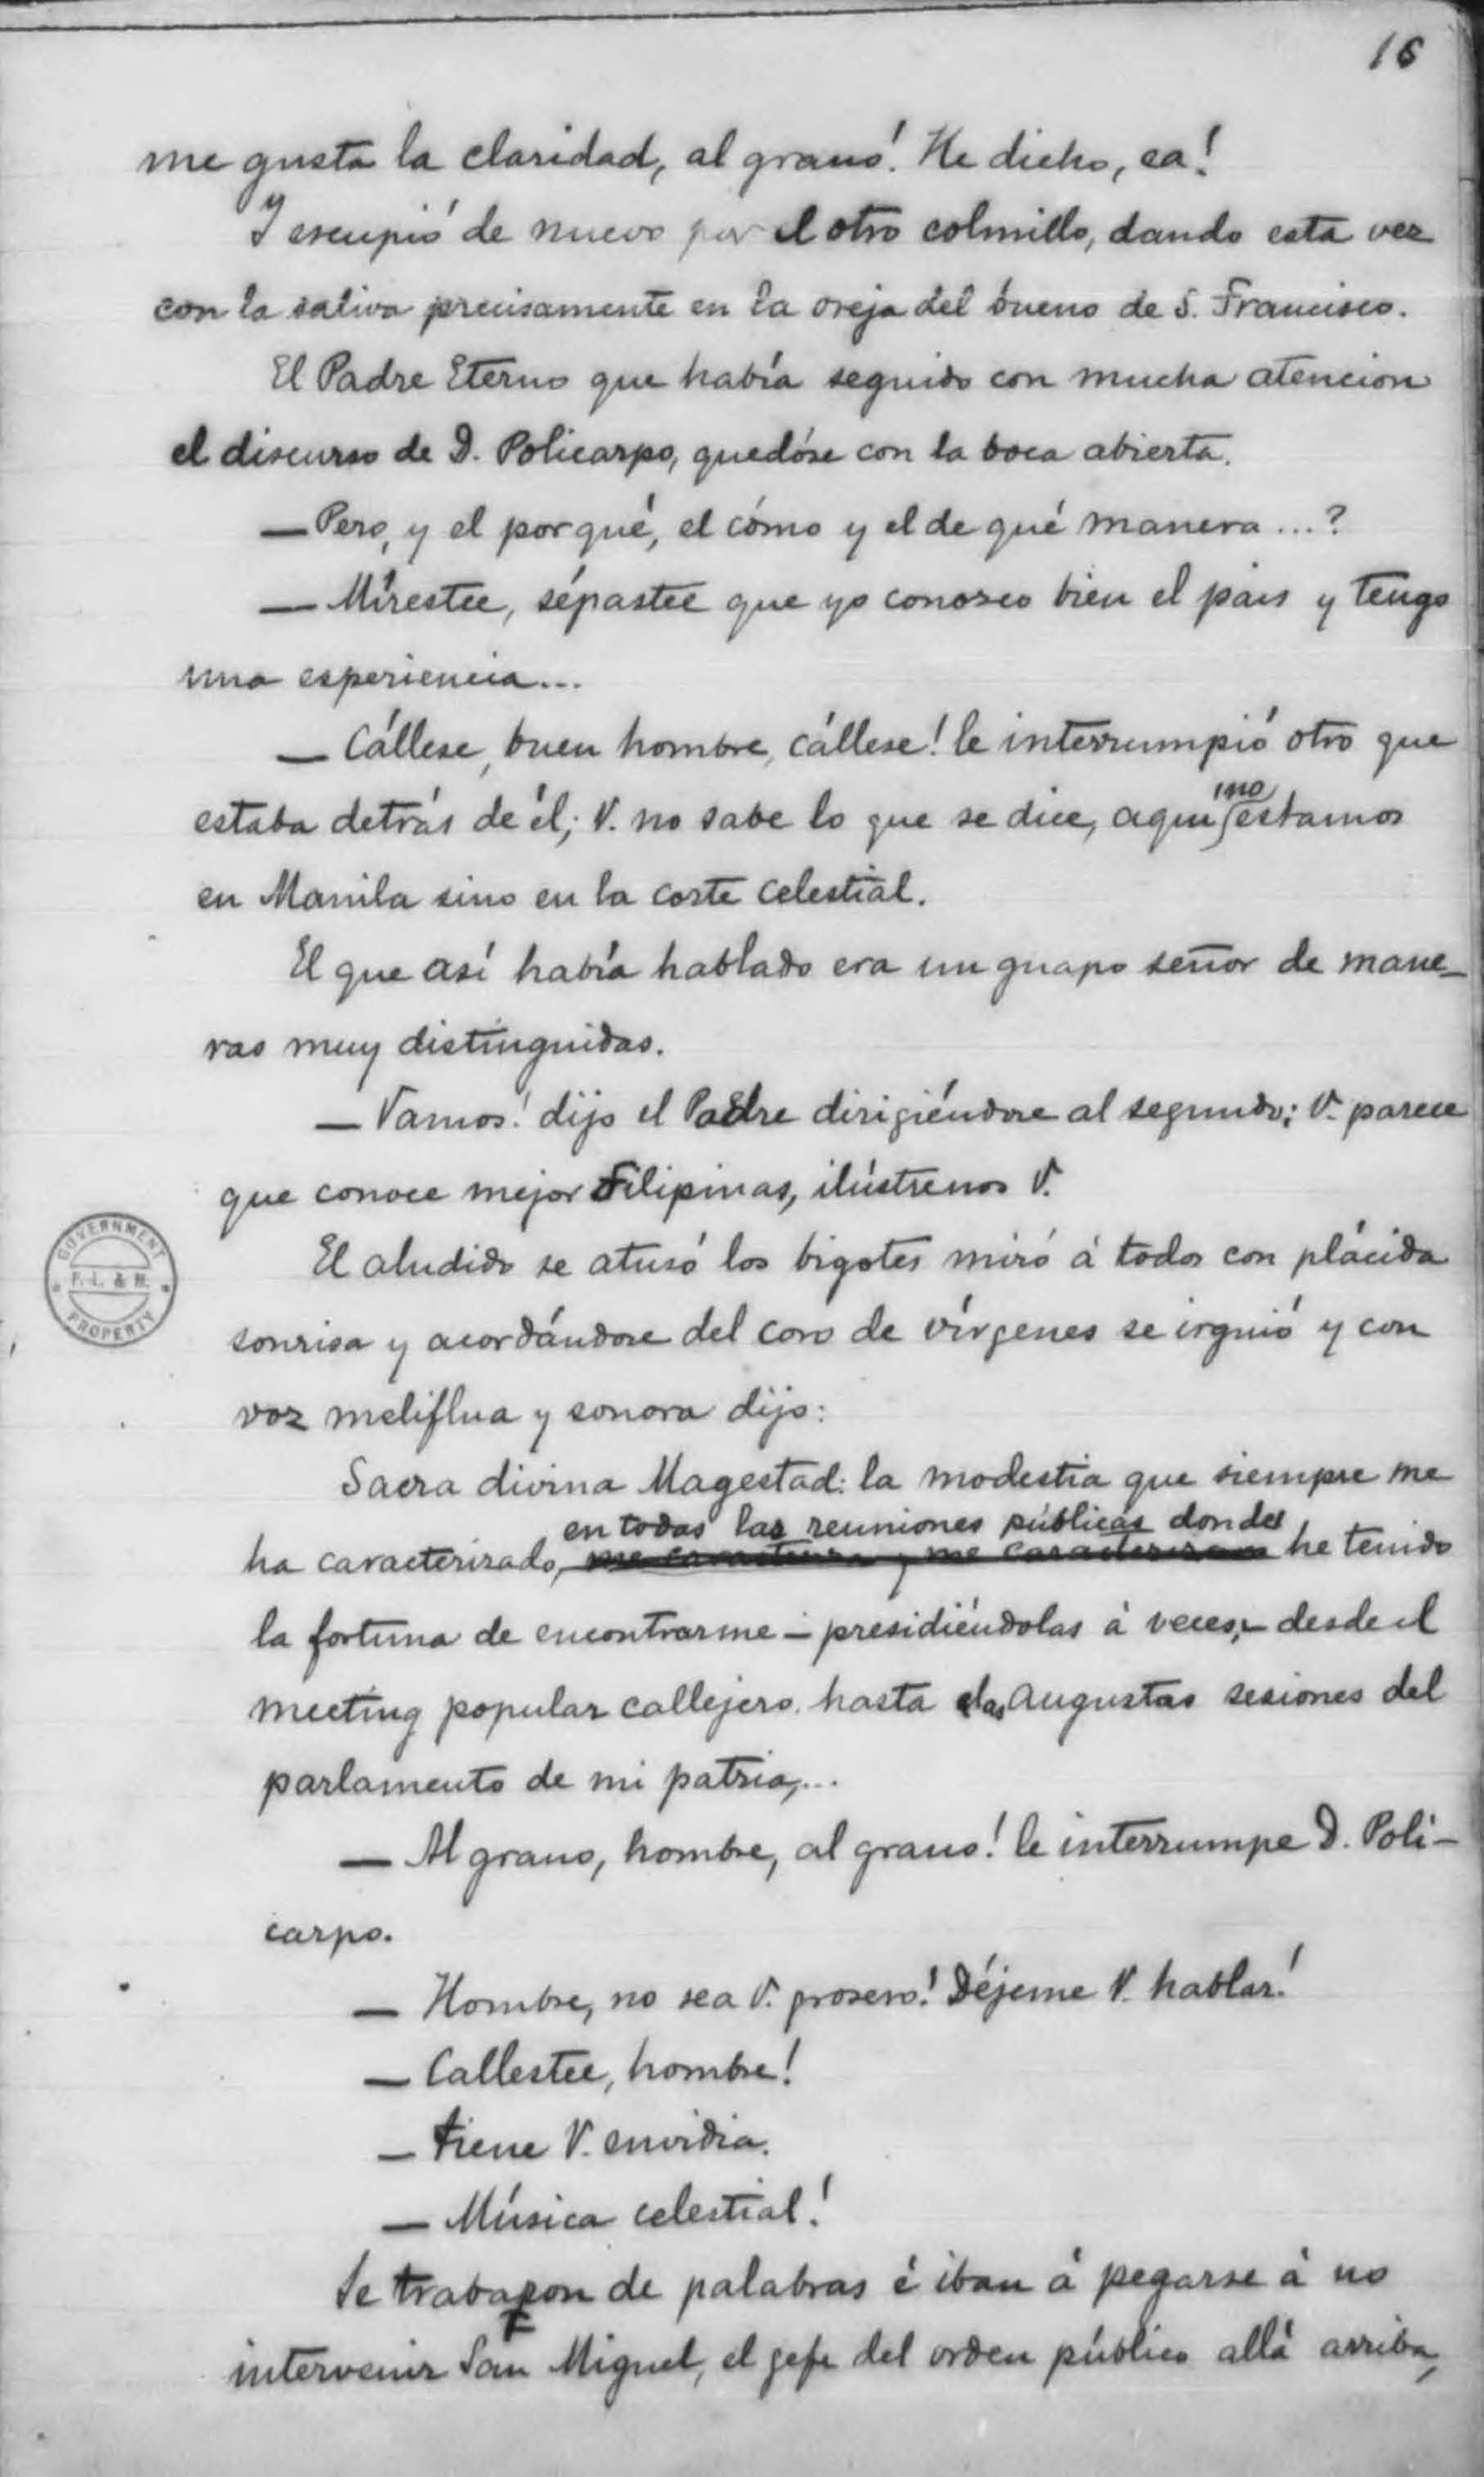 16
me gusta la claridad, al grano! He dicho, ea!
Y escupió de nuevo por el otro colmillo, dando esta vez
con la saliva precisamente en la oreja del bueno de S. Francisco.
El Padre Eterno que había seguido con mucha atencion
el discurso de D. Policarpo, quedóse con la boca abierta.
— Pero, y el por qué, el cómo y el de qué manera ...?
— Mírestee, sépastee que yo conozco bien el pais y tengo
una esperiencia...
— Cállese, buen hombre, cállese! le interrumpió otro que
estaba detrás de él; V. no sabe lo que se dice, aqui no estamos
en Manila sino en la corte celestial.
El que así había hablado era un guapo señor de mane-
ras muy distinguidas.
— Vamos! dijo el Padre dirigiéndose al segundo; V. parece
que conoce mejor Filipinas, ilústrenos V.
El aludido se atusó los bigotes miró á todos con plácida
GOVERNMENT
P. L. & M.
PROPERTY
sonrisa y acordándose del coro de vírgenes se irguió y con
voz meliflua y sonora dijo:
Sacra divina Magestad: la modestia que siempre me
en todas las reuniones públicas donde
ha caracterizado, he tenido
la fortuna de encontrarme – presidiéndolas á veces, – desde el
meeting popular callejero hasta las augustas sesiones del
parlamento de mi patria,...
— Al grano, hombre, al grano! le interrumpe D. Poli-
carpo.
— Hombre, no sea V. grosero! Déjeme V. hablar!
— Callestee, hombre!
— Tiene V. envidia.
— Música celestial!
Se trabaron de palabras é iban á pegarse á no
intervenir San Miguel, el gefe del orden público allá arriba,